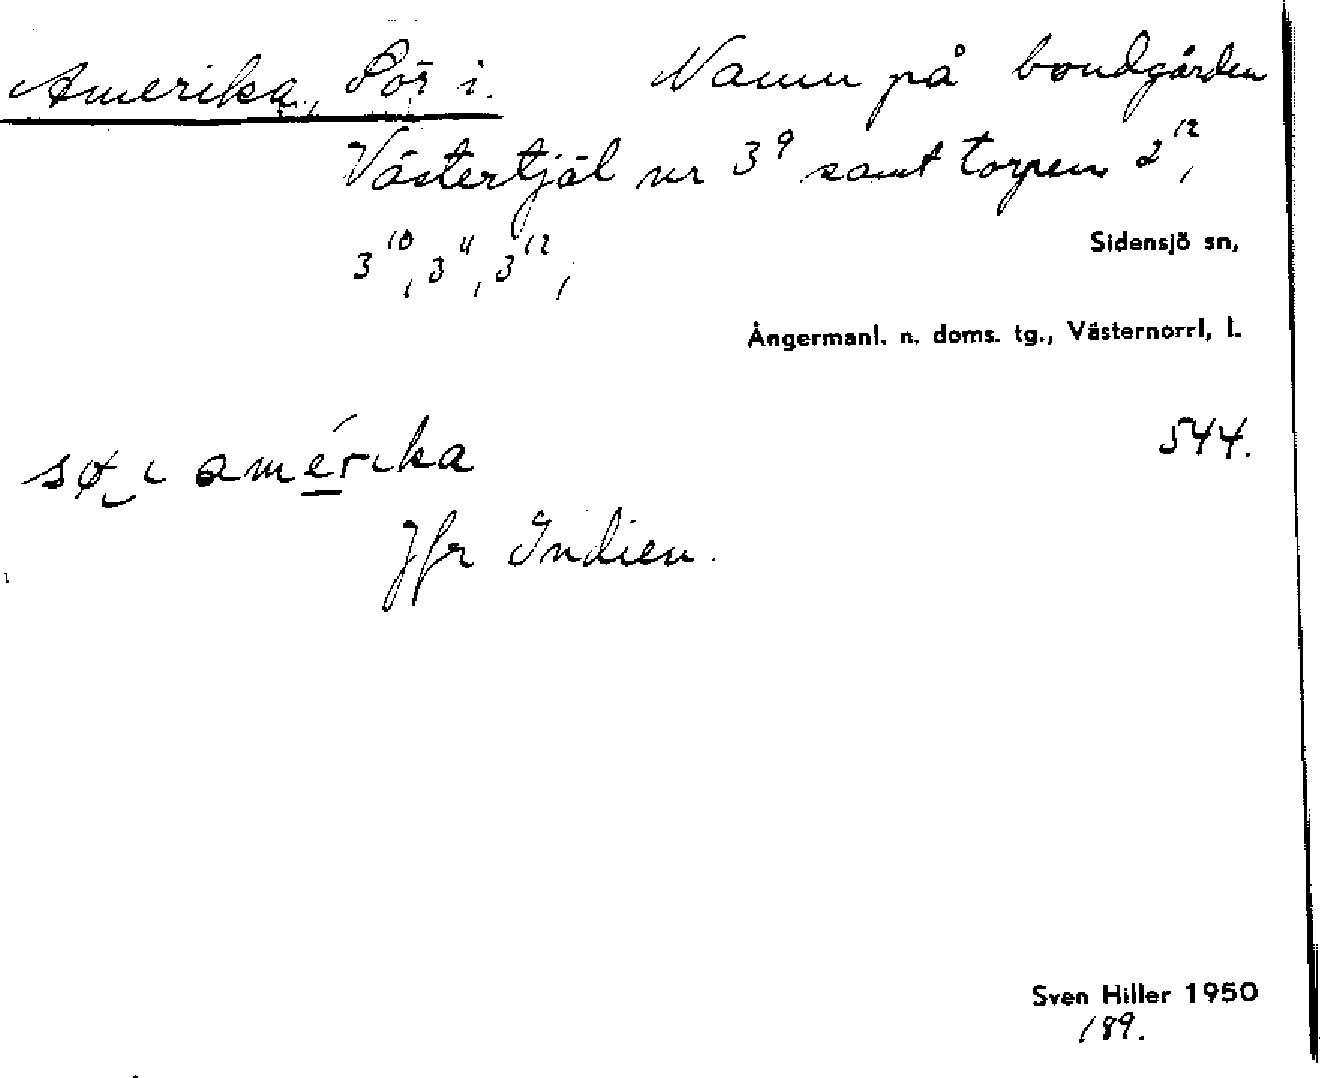 Amerika, Sör i. Namn på bondgården
Västertjäl nr 3⁹ samt torpen 2¹²,
3¹⁰, 3¹¹, 3¹²,
Sidensjö sn,
Ångermanl. n. doms. tg., Västernorrl, l.
544.
sø‿ ɩ amérɩka
Jfr Indien.
Sven Hiller 1950
189.